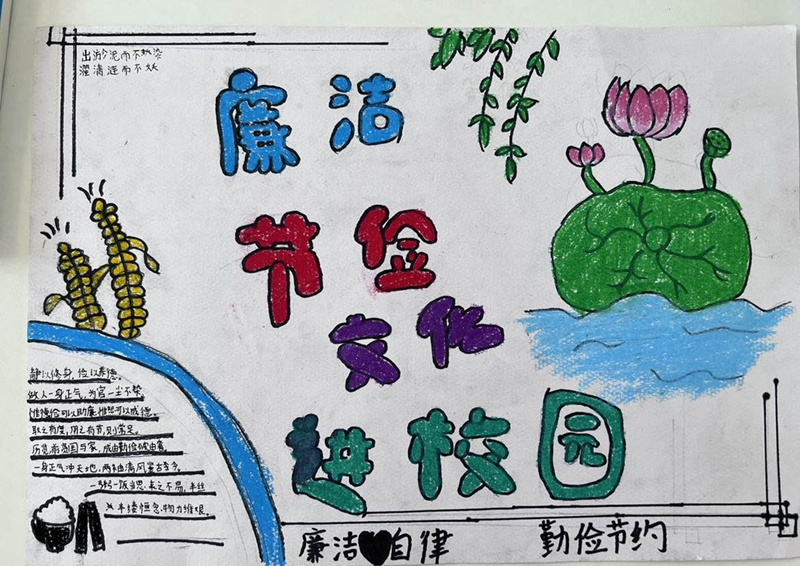 出淤泥而不染
濯清涟而不妖
廉洁
节俭
文化
进校园
静以修身,俭以养德。
做人一身正气,为官一尘不染
惟俭可以助廉,惟恕可以成德。
取之有度,用之有节,则常足。
历览前贤国与家,成由勤俭破由奢。
一身正气冲天地,两袖清风
一粥一饭当思来之不易,半丝
半缕恒念物力维艰。
廉洁自律
勤俭节约